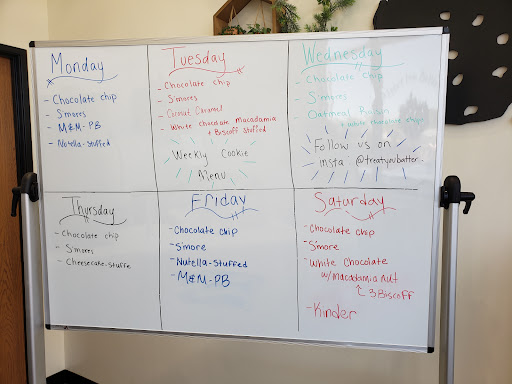 Monday
- Chocolate chip
- S'mores
- M&M-PB
- Nutella-stuffed
Tuesday
- Chocolate chip
- S'mores
- White chocolate macadamia
+ Biscoff stuffed
Weekly Cookie
Menu
Wednesday
- Chocolate chip
- S'mores
- Oatmeal Raisin
+ white chocolate chip
Follow us on
insta @treatyoubatter
Thursday
- Chocolate chip
- S'mores
- Cheesecake-stuffe
Friday
- Chocolate chip
- S'more
- Nutella-Stuffed
- M&M-PB
Saturday
- Chocolate chip
- S'more
- White Chocolate
w/macadamia nut
Biscoff
- Kinder